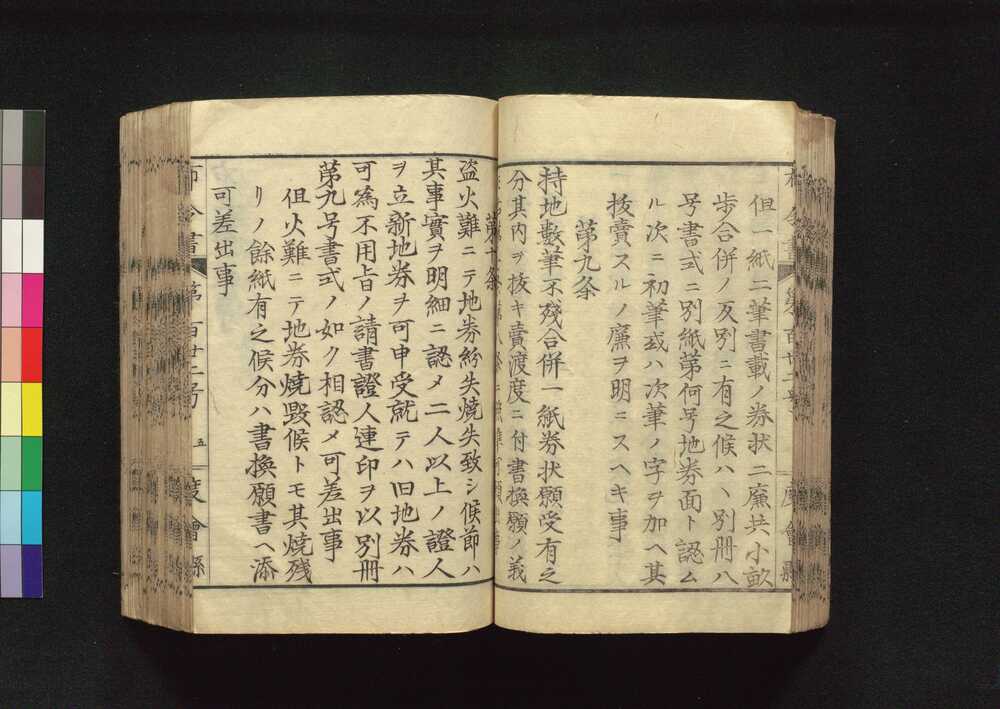 但一紙二筆書載ノ券状二廉共小畝
歩合併ノ反別ニ有之候ハヽ別冊八
号書式ニ別紙第何号地券面ト認ム
ル次ニ初筆或ハ次筆ノ字ヲ加ヘ其
抜賣スルノ廉ヲ明ニスヘキ事
第九条
持地数筆不残合併一紙券状願受有之
分其内ヲ抜キ賣渡度ニ付書換願ノ義
盗火難ニテ地券紛失焼失致シ候節ハ
其事實ヲ明細ニ認メ二人以上ノ證人
ヲ立新地券ヲ可申受就テハ旧地券ハ
可為不用旨ノ請書證人連印ヲ以別冊
第九号書式ノ如ク相認メ可差出事
但火難ニテ地券焼毀候トモ其焼残
リノ餘紙有之候分ハ書換願書ヘ添
可差出事
布令書 第百廿二号 五 度會縣